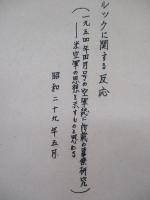 ルックに関する反応
(一九五四年四月号の空軍誌に掲載の募集研究)
――米空軍の思想を示すものと思わる
昭和二十九年五月